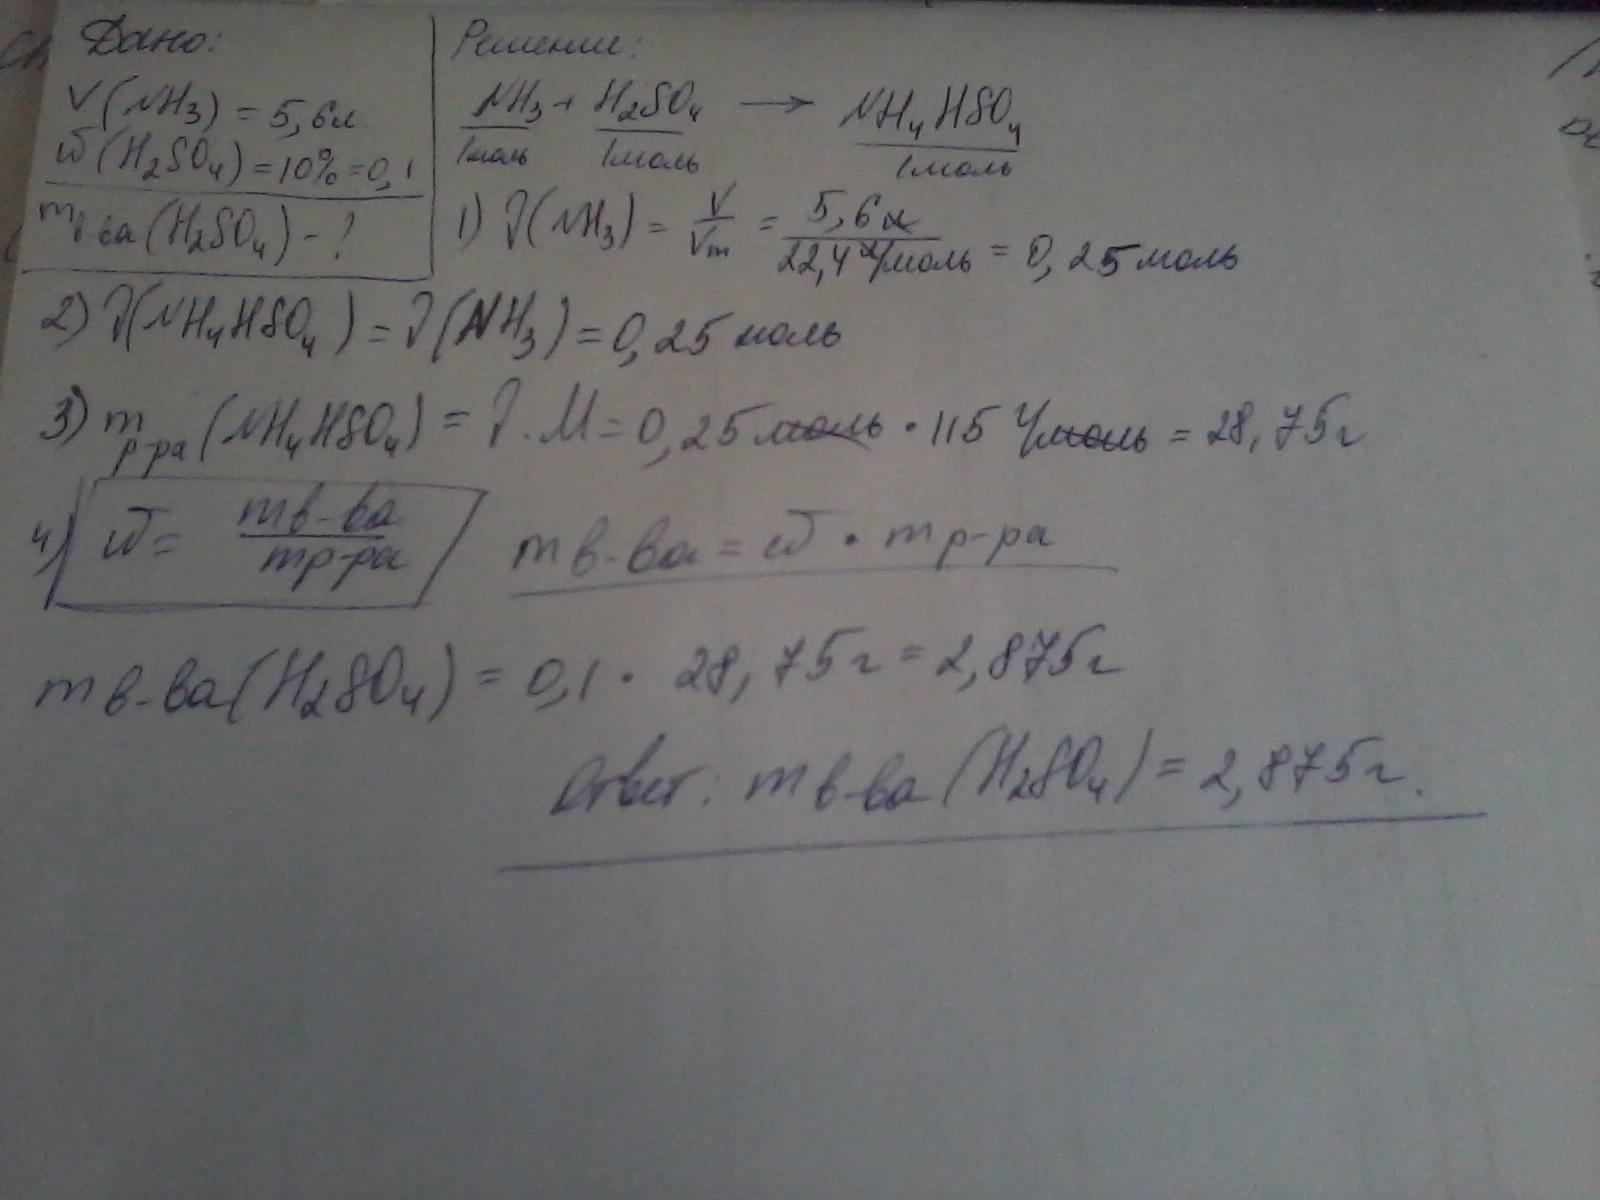 Дано:
V(NH₃) = 5,6л
ω(H₂SO₄) = 10% = 0,1
m в-ва (H₂SO₄) - ?
Решение:
NH₃ + H₂SO₄ → NH₄HSO₄
1моль 1моль 1моль
1) ν(NH₃) = V/Vm = 5,6л / 22,4 л/моль = 0,25 моль
2) ν(NH₄HSO₄) = ν(NH₃) = 0,25 моль
3) m р-ра (NH₄HSO₄) = ν · M = 0,25 моль · 115 г/моль = 28,75г
4) ω = m в-ва / m р-ра m в-ва = ω · m р-ра
m в-ва (H₂SO₄) = 0,1 · 28,75г = 2,875г
Ответ: m в-ва (H₂SO₄) = 2,875г.